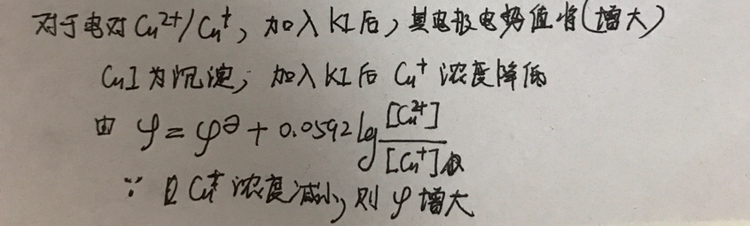 对于电对 Cu²⁺/Cu⁺, 加入 KI 后, 其电极电势值将(增大)
CuI 为沉淀, 加入 KI 后 Cu⁺ 浓度降低
由 φ = φ^θ + 0.0592 lg [Cu²⁺]/[Cu⁺]
∵ Cu⁺ 浓度减小, 则 φ 增大